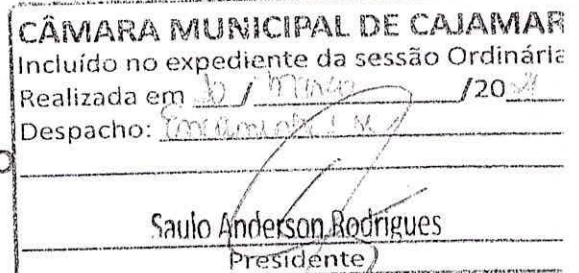 CÂMARA MUNICIPAL DE CAJAMAR
Incluído no expediente da sessão Ordinária
Realizada em / Março /20
Despacho:
Saulo Anderson Rodrigues
Presidente